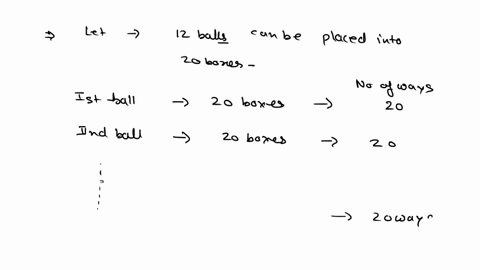 ⇒ Let → 12 balls can be placed into
20 boxes -
No of ways
Ist ball → 20 boxes → 20
IInd ball → 20 boxes → 20
→ 20 ways